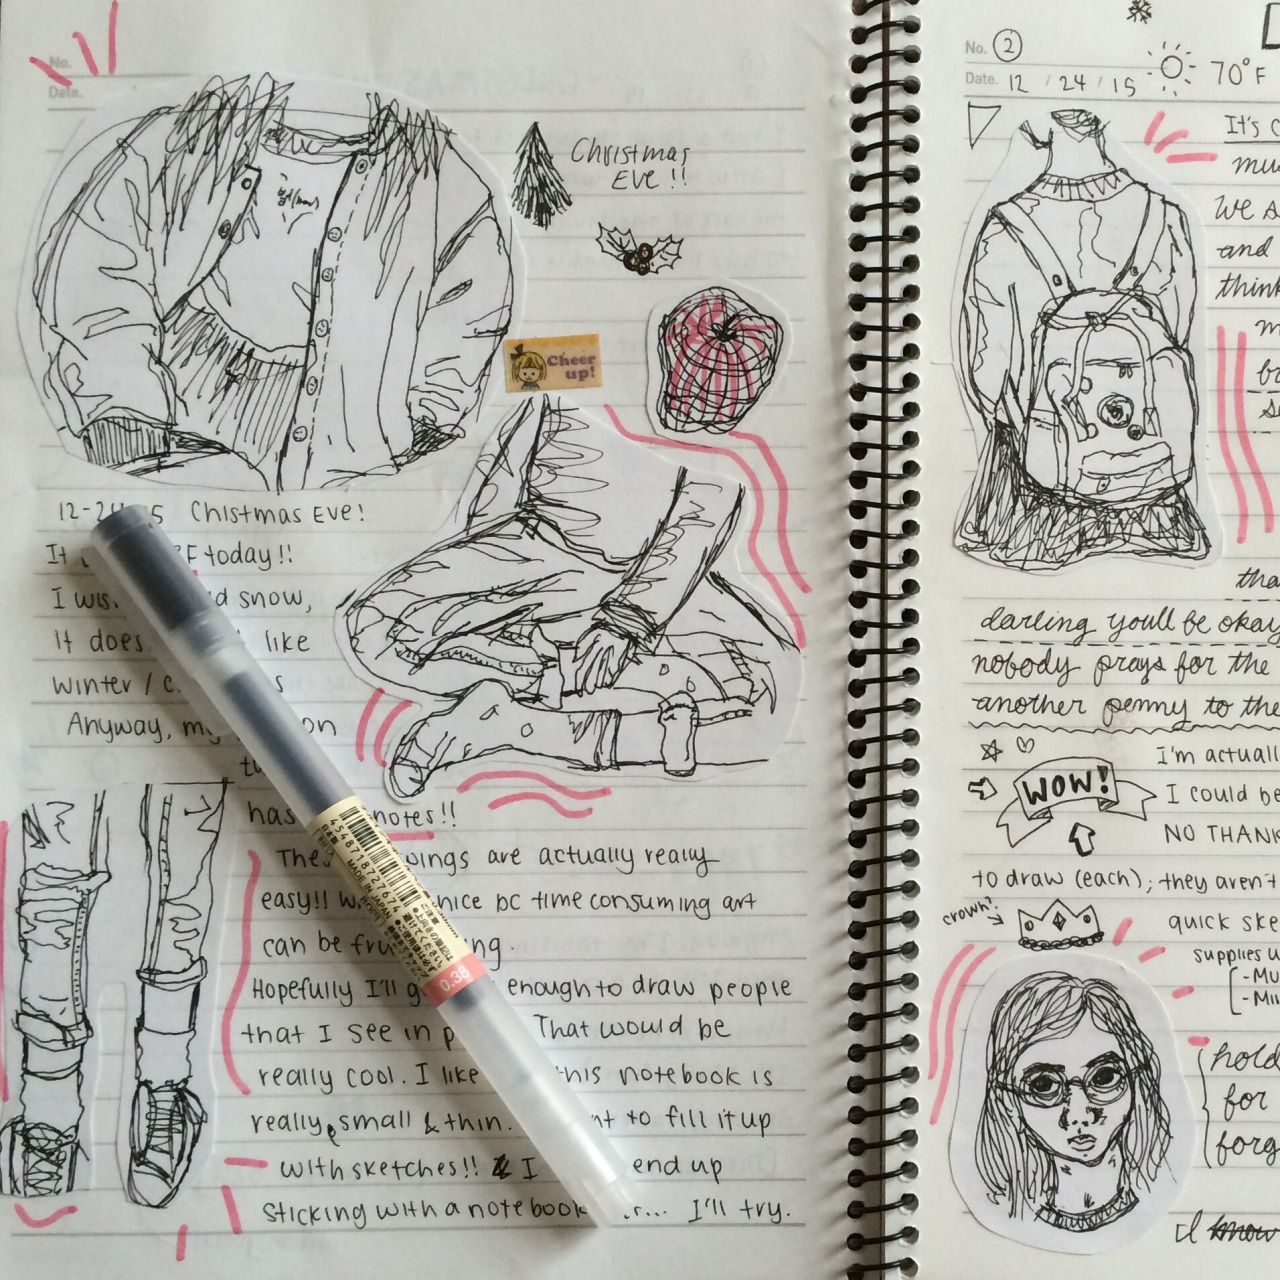 No.
Date.
Christmas
Eve!!
Cheer
up!
12-24-15 Christmas Eve!
It F today!!
I wis d snow,
It does like
winter / c s
Anyway, my on
has notes!!
These are actually really
easy!! nice bc time consuming art
can be fru ing.
Hopefully I'll g enough to draw people
that I see in p That would be
really cool. I like this notebook is
really small & thin. nt to fill it up
with sketches!! I end up
sticking with a notebook I'll try.
4548718727674
MADE IN JAPAN
0.38
No. 2
Date. 12 / 24 / 15
70°F
It's
mu
We s
and
think
m
b
s
tha
darling youll be okay
nobody prays for the
another penny to the
WOW!
I'm actuall
I could be
NO THANK
to draw (each); they aren't
crown?
quick ske
supplies u
-Mu
-Mi
hold
for
forg
I know